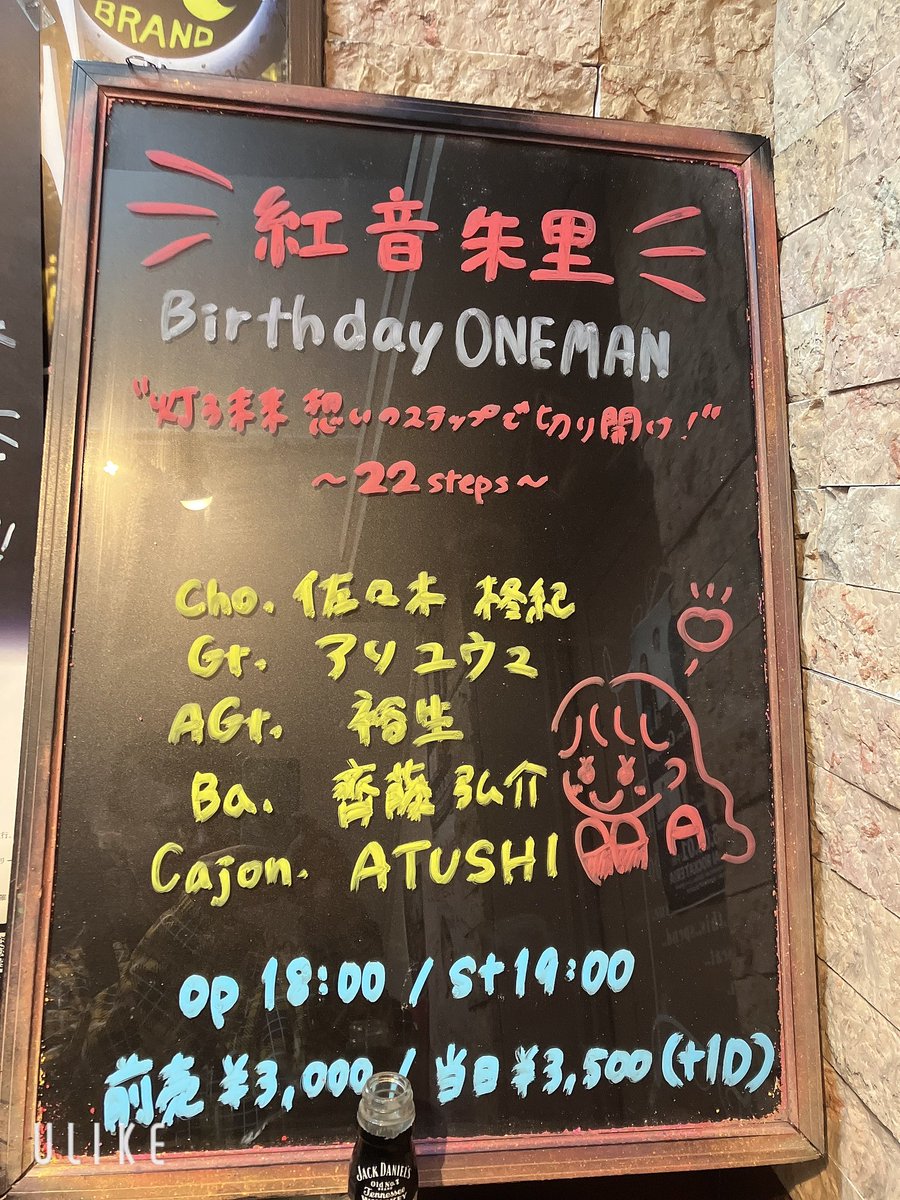 BRAND
紅音朱里
Birthday ONEMAN
"灯る未来 想いのステップで切り開け!"
～22 steps～
Cho. 佐々木 柊紀
Gr. アリユウコ
AGr. 裕生
Ba. 齊藤 弘介
Cajon. ATUSHI
A
op 18:00 / st 19:00
前売 ¥3,000 / 当日 ¥3,500 (+1D)
ULIKE
JACK DANIEL'S
Old No.7
BRAND
Tennessee